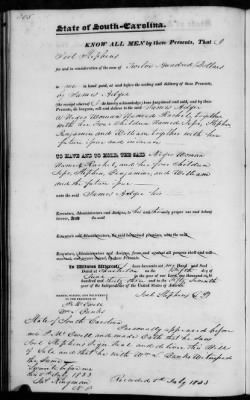 State of South-Carolina.
KNOW ALL MEN by these Presents, That I
Joel Stephens
for and in consideration of the sum of Twelve Hundred Dollars
to me in hand paid, at and before the sealing and delivery of these Presents,
by James Adger
the receipt whereof I do hereby acknowledge) have bargained and sold, and by these
Presents, do bargain, sell and deliver to the said James Adger
a Negro Woman Named Rachel, together
with her four Children Named Jeff, Stephen
Benjamin and William together with her
future issue and increase
TO HAVE AND TO HOLD, THE SAID Negro Woman
Named Rachel and her four children
Jeff, Stephen, Benjamin, and William
and the future issue
unto the said James Adger his
Executors, Administrators and Assigns, to his and their only proper use and behoof
forever. And
Executors, Administrators and Assigns, from and against all persons
In Witness Whereof, I have hereunto set my Hand and Seal
Dated at Charleston on the
in the year of our Lord one thousand eight
hundred and thirty three and in the fifty seventh
year of the Independence of the United States of America.
Joel Stephens
IN THE PRESENCE OF
Wm Banks
State of South Carolina
Personally appeared before
me and made Oath that he saw
Joel Stephens Sign Seal and deliver the Bill
of Sale and that he with Wm Banks witnessed
the same
Sworn to before me
July 1833
Recorded July 1833